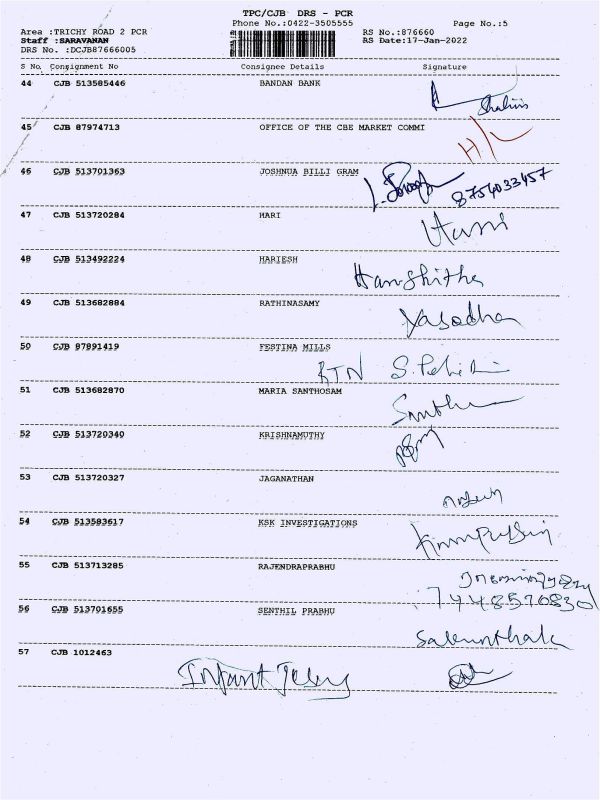 TPC/CJB DRS - PCR
Phone No.:0422-3505555 Page No.:5
Area :TRICHY ROAD 2 PCR RS No.:876660
Staff :SARAVANAN RS Date:17-Jan-2022
DRS No. :DCJB87666005
S No. Consignment No Consignee Details Signature
44 CJB 513585446 BANDAN BANK
Shalini
45 CJB 87974713 OFFICE OF THE CBE MARKET COMMI
46 CJB 513701363 JOSHNUA BILLI GRAM
8754033457
47 CJB 513720284 HARI
48 CJB 513492224 HARIESH
Harshitha
49 CJB 513682884 RATHINASAMY
Yasodha
50 CJB 87891419 FESTINA MILLS
RTN
51 CJB 513682870 MARIA SANTHOSAM
52 CJB 513720340 KRISHNAMUTHY
53 CJB 513720327 JAGANATHAN
54 CJB 513583617 KSK INVESTIGATIONS
55 CJB 513713285 RAJENDRAPRABHU
7448570830
56 CJB 513701655 SENTHIL PRABHU
57 CJB 1012463
Infant Jelsy